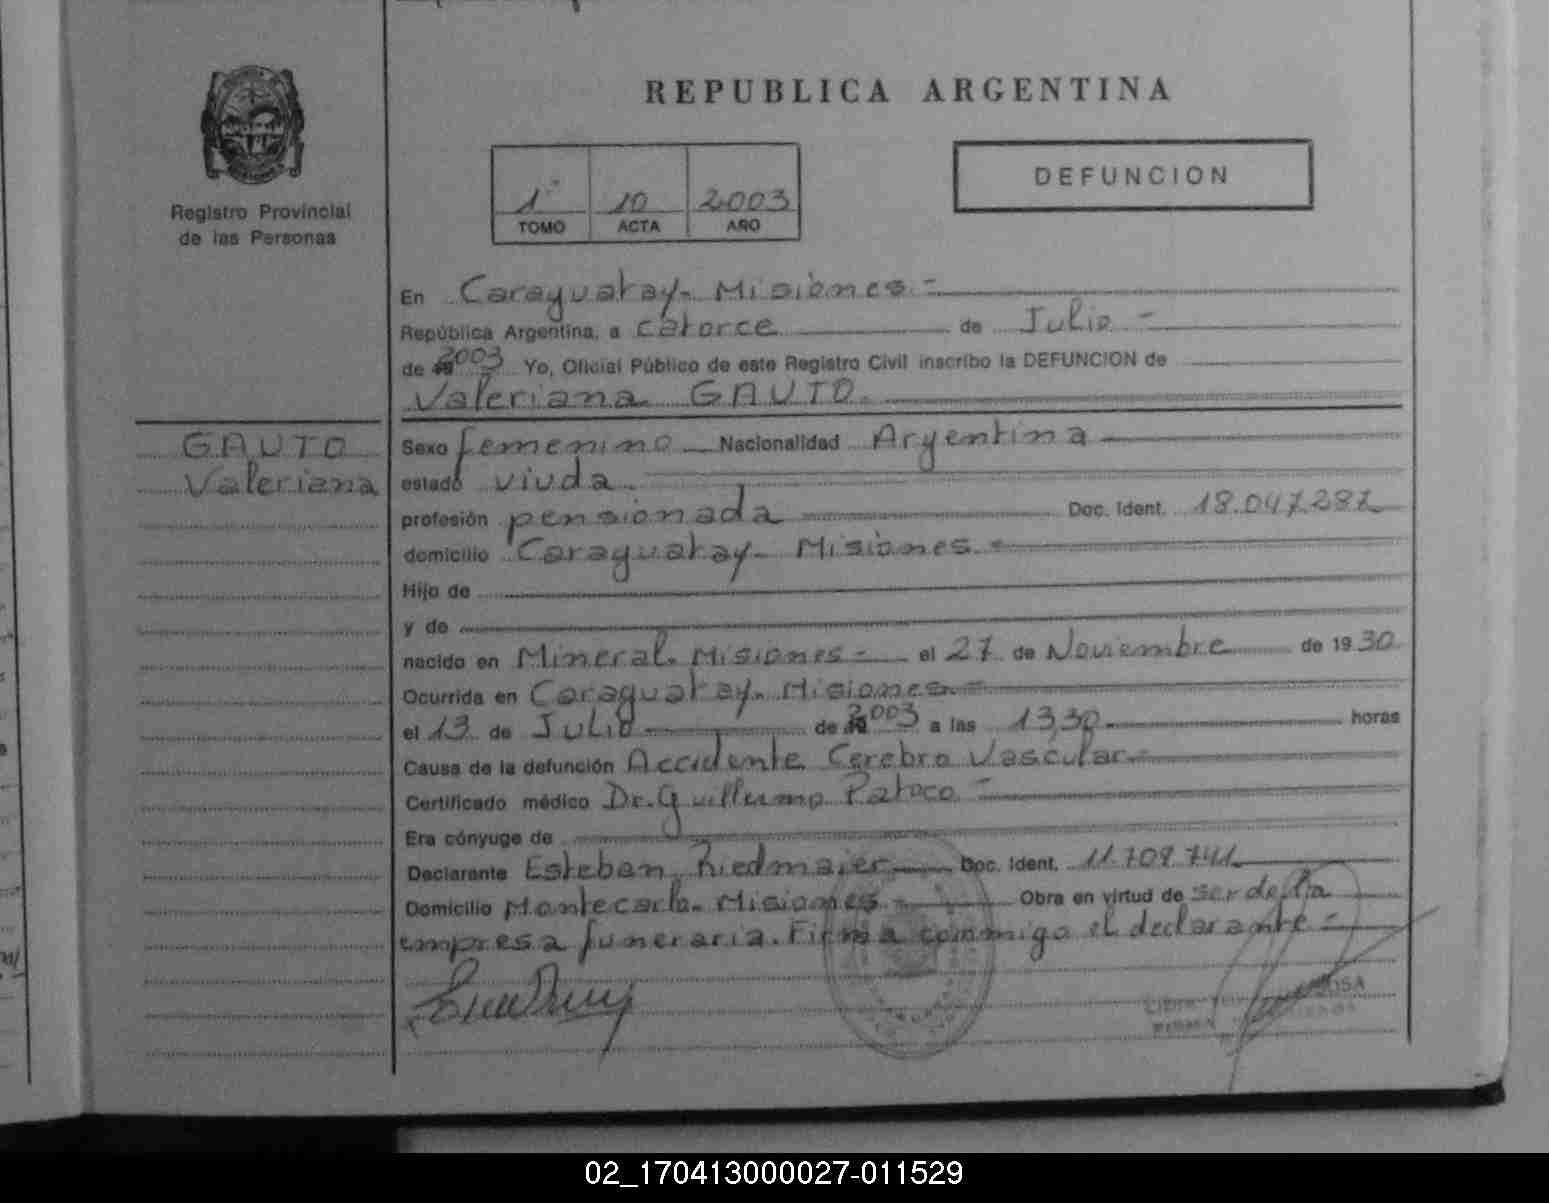 REPUBLICA ARGENTINA
Registro Provincial
de las Personas
1º 10 2003
TOMO ACTA AÑO
DEFUNCION
En Caraguatay - Misiones.-
República Argentina, a catorce de Julio -
de 2003 Yo, Oficial Público de este Registro Civil inscribo la DEFUNCION de
Valeriana GAUTO.
GAUTO
Valeriana
Sexo femenino Nacionalidad Argentina
estado viuda.
profesión pensionada Doc. Ident. 18.047.287
domicilio Caraguatay - Misiones.-
Hijo de
y de
nacido en Mineral - Misiones - el 27 de Noviembre de 1930
Ocurrida en Caraguatay - Misiones.-
el 13 de Julio de 2003 a las 13,30 horas
Causa de la defunción Accidente Cerebro Vascular.-
Certificado médico Dr. Guillermo Patoco -
Era cónyuge de
Declarante Esteban Riedmaier Doc. Ident. 11.709.741
Domicilio Montecarlo - Misiones.- Obra en virtud de ser de la
empresa funeraria. Firma conmigo el declarante.-
02_170413000027-011529